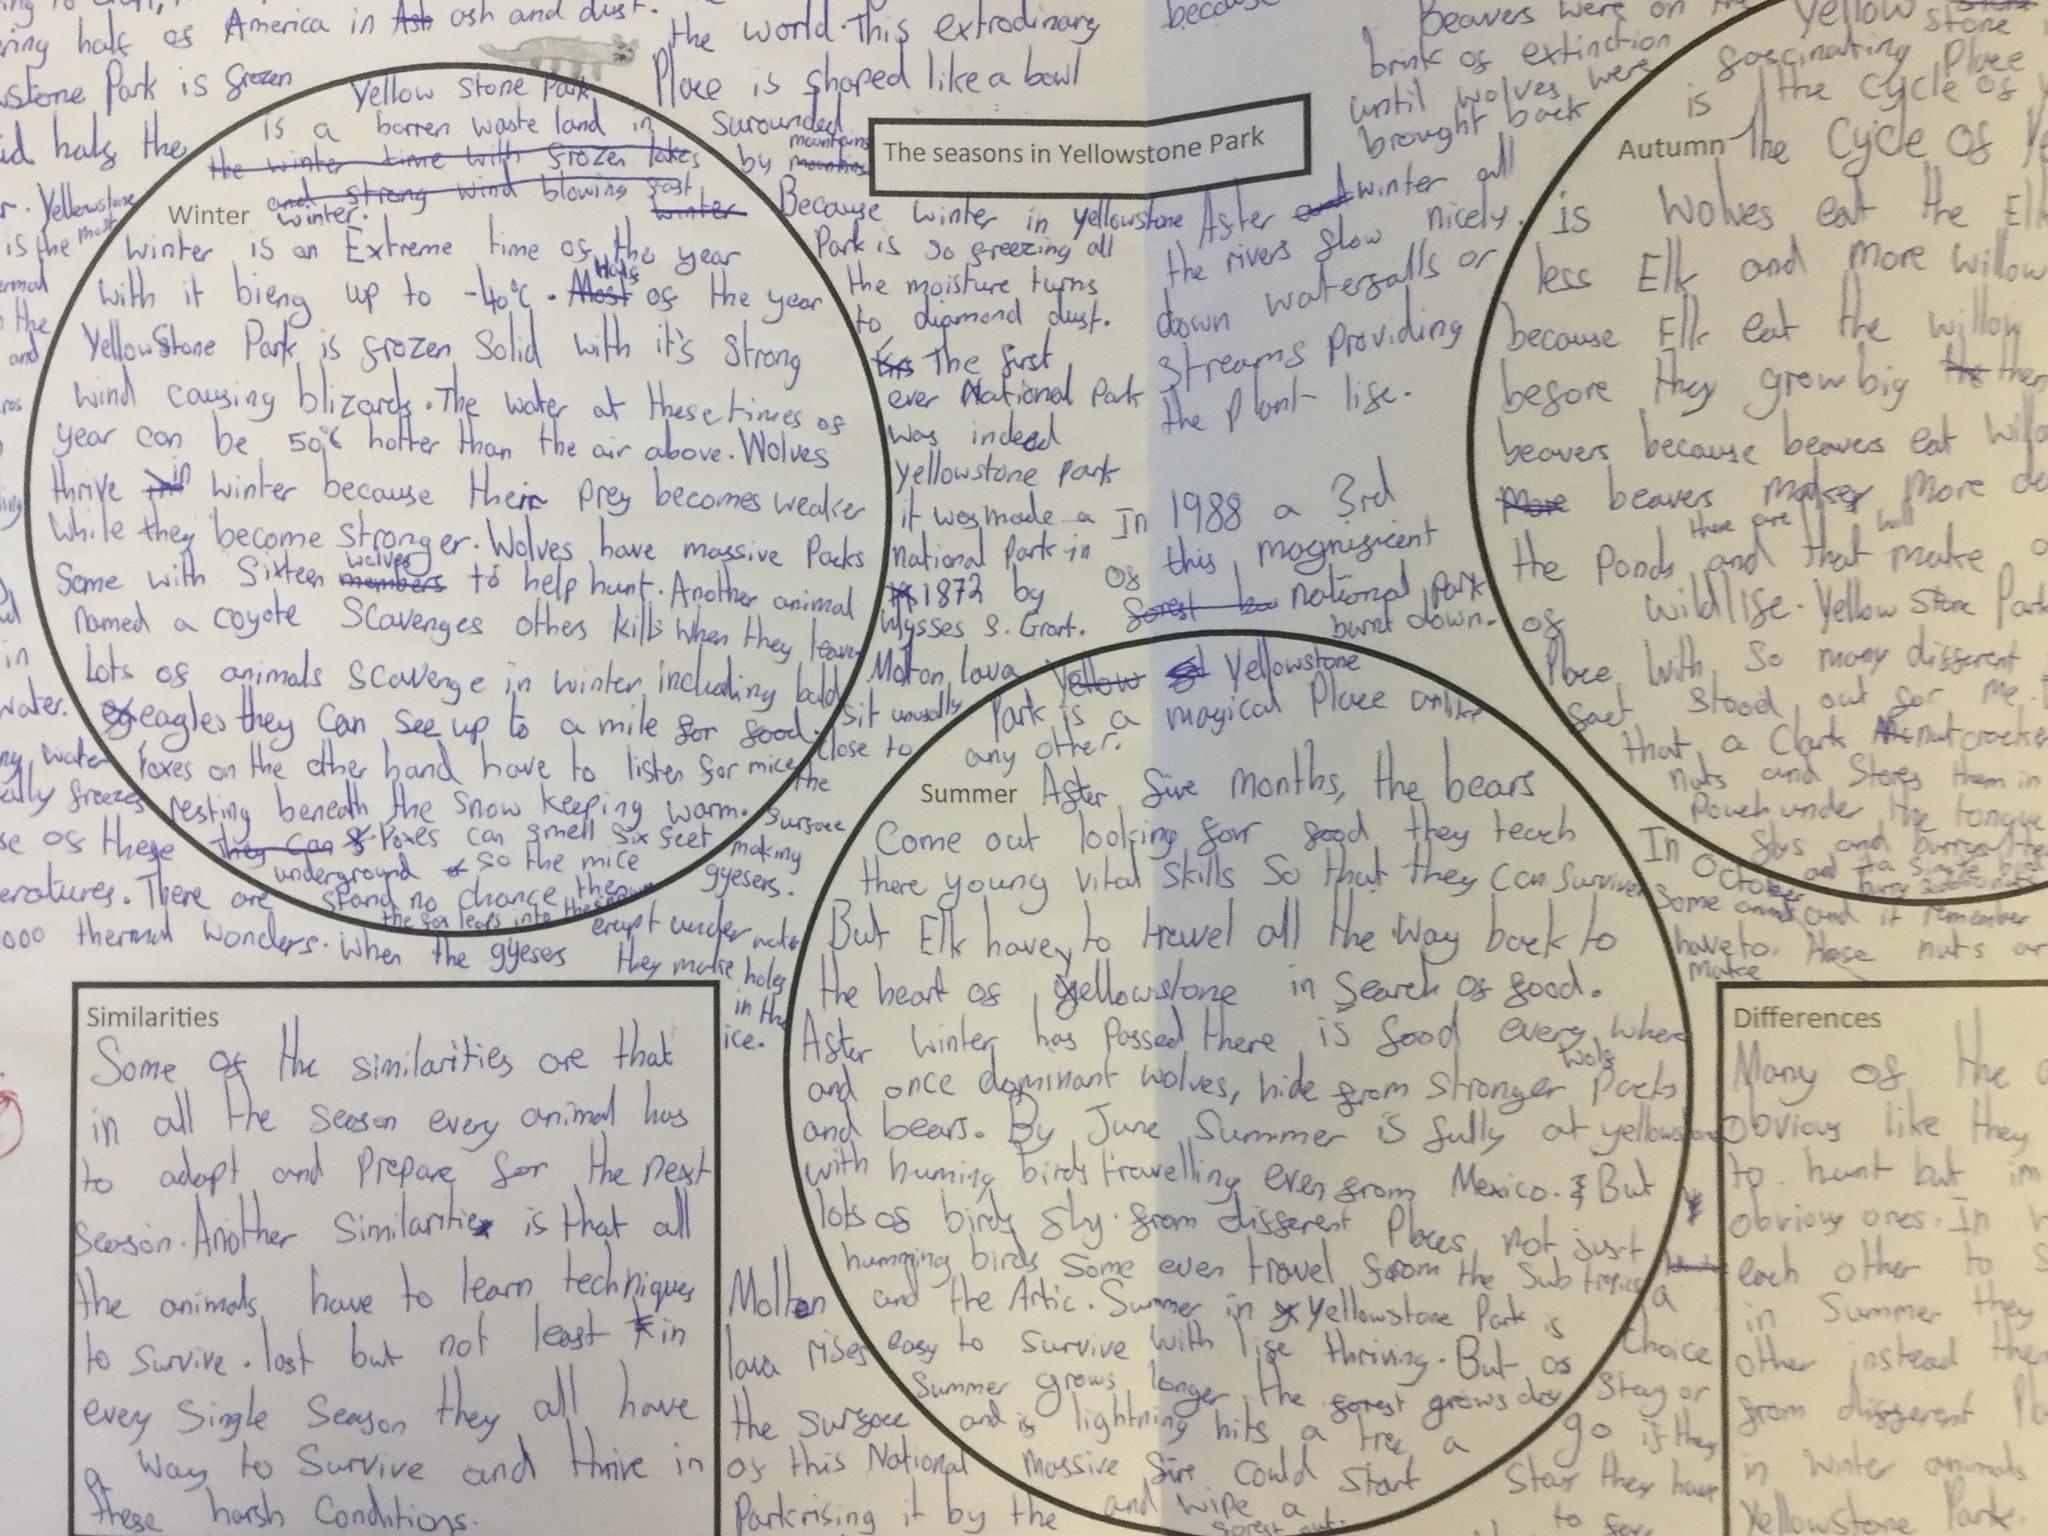 ering half of America in ash and dust.
stone Park is frozen
half the
Yellowstone
is the most
the world. This extrodinary
Place is shaped like a bowl
surounded
by mountains
because
Beavers were on
brink of extinction
until wolves were
brought back
The seasons in Yellowstone Park
Yellow Stone Park
is a barren waste land in
the winter time with frozen lakes
and strong wind blowing fast
winter.
Winter
Winter is an Extreme time of the year
with it bieng up to -40°C. Half of the year
YellowStone Park is frozen Solid with it's strong
wind causing blizards. The water at these times of
year can be 50°C hotter than the air above. Wolves
thrive in winter because their prey becomes weaker
while they become stronger. Wolves have massive Packs
Some with Sixteen wolves to help hunt. Another animal
named a coyote Scavenges others kills when they leave
Lots of animals Scavenge in winter including bald
eagles they can see up to a mile for food.
Foxes on the other hand have to listen for mice
resting beneath the snow keeping warm.
They can Foxes can smell six feet
underground so the mice
stand no chance then
the fox leaps into the snow
Because winter in yellowstone
Park is so freezing all
the moisture turns
to diamond dust.
The first
ever National Park
was indeed
yellowstone park
it was made a
national park in
1872 by
Ulysses S. Grant.
Molton lava
sit unusally
close to
the
surface
making
gyesers.
After winter all
the rivers flow nicely.
down waterfalls or
streams providing
the plant life.
In 1988 a 3rd
of this magnificent
national park
burnt down.
water.
freezes
of these
eratures. There are
000 thermal wonders. When the gyesers
erupt under water
they make holes
in the
ice.
Yellow Yellowstone
Park is a magical Place unlike
any other.
Summer
After five months, the bears
Come out looking for food they teach
there young vital skills so that they can survive
But Elk have to travel all the way back to
the heart of yellowstone in Search of food.
After winter has passed there is food every where
and once dominant wolves, hide from stronger wolf Packs
and bears. By June Summer is fully at yellowstone
with huming birds travelling even from Mexico. But
lots of birds fly from different Places not just
humming birds some even travel from the Sub tropics
and the Artic. Summer in Yellowstone Park is
easy to survive with life thriving. But as
Summer grows longer the forest grows dry
and is lightning hits a tree a
massive fire could start
and wipe a
forest out.
Yellow stone
fascinating Place
is the cycle of
Autumn
The Cycle of
is Wolves eat the Elk
less Elk and more willow
because Elk eat the willow
before they grow big
beavers because beavers eat
beavers more
the Ponds there are and that will make
of wildlife. Yellow Stone Park
Place with so many different
fact stood out for me.
that a Clark nutcracker
nuts and Stores them in
Pouch under the tongue
flys and burrys
In October
Some and it remember
have to these nuts
make
a
choice
Stay or
go if they
stay they have
to
Similarities
Some of the similarities are that
in all the season every animal has
to adapt and Prepare for the next
season. Another Similaritie is that all
the animals have to learn techniques
to survive. last but not least in
every single season they all have
a way to Survive and thrive in
these harsh Conditions.
Molten
lava rises
the surface
of this National
Park rising it by the
Differences
Many of the
obvious like they
to hunt but
obvious ones. In
each other to
in Summer they
other instead
from different
in winter animals
Yellowstone Park.